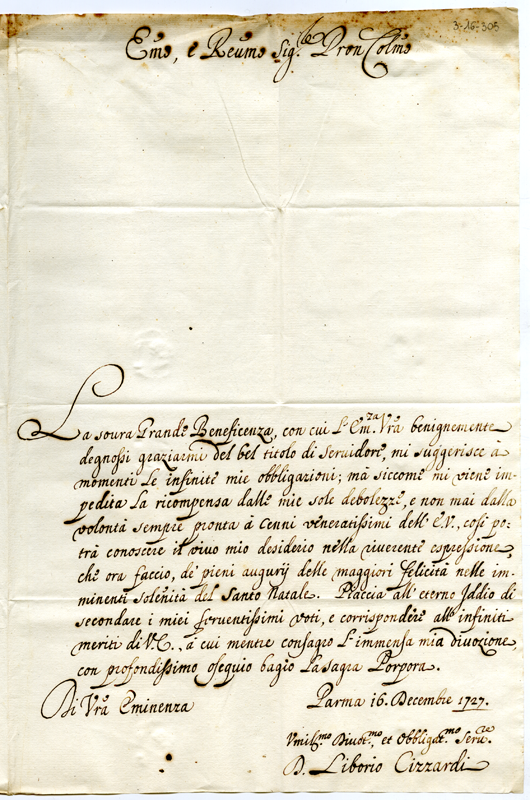 3-16-305
Emo, e Reumo Sig.re Pron Colmo
La soura Grande Beneficenza, con cui l'Em.za Vra benignemente
degnossi graziarmi del bel titolo di Seruidore, mi suggerisce à
momenti le infinite mie obbligazioni; mà siccome mi viene im-
pedita la ricompensa dalle mie sole debolezze, e non mai dalla
volontà sempre pronta à cenni veneratissimi dell'E.V., così po-
trà conoscere il viuo mio desiderio nella riuerente espressione,
che ora faccio, de' pieni augurij delle maggiori felicità nelle im-
minenti solenità del Santo Natale. Piaccia all'eterno Iddio di
secondare i miei feruentissimi voti, e corrispondere alli infiniti
meriti di V.E., à cui mentre consagro l'immensa mia diuozione,
con profondissimo ossequio bagio la sagra Porpora.
Di Vra Eminenza
Parma 16. Decembre 1727.
Vmil.mo Diuot.mo, et Obbligat.mo Seru.re
D. Liborio Cizzardi